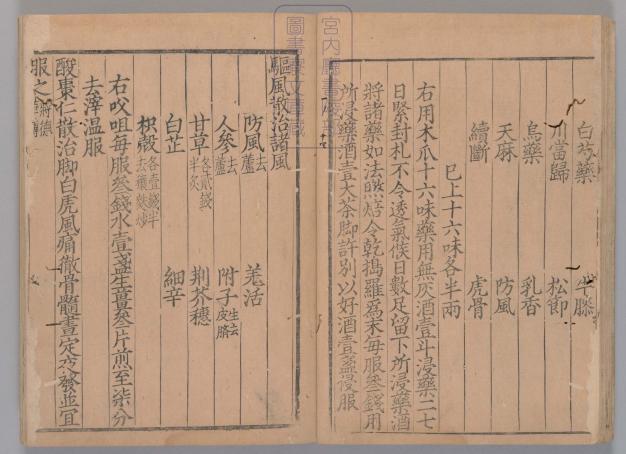 白芍藥　牛膝
川當歸　松節
烏藥　乳香
天麻　防風
續斷　虎骨
已上十六味各半兩
右用木瓜十六味藥用無灰酒壹斗浸藥二七
日緊封札不令透氣俟日數足留下所浸藥酒
將諸藥如法㷶焙令乾搗羅爲末每服叁錢用
所浸藥酒壹大茶脚許別以好酒壹盞浸服
驅風散治諸風
防風去蘆　羌活
人參去蘆　附子生去皮臍
甘草各貳錢半炙　荆芥穗
白芷　細辛
枳殼各壹錢半去穰麩炒
右㕮咀每服叁錢水壹盞生薑叁片煎至柒分
去滓温服
酸棗仁散治脚白虎風痛徹骨髓晝定夜發並宜
服之
宮内廳書陵部